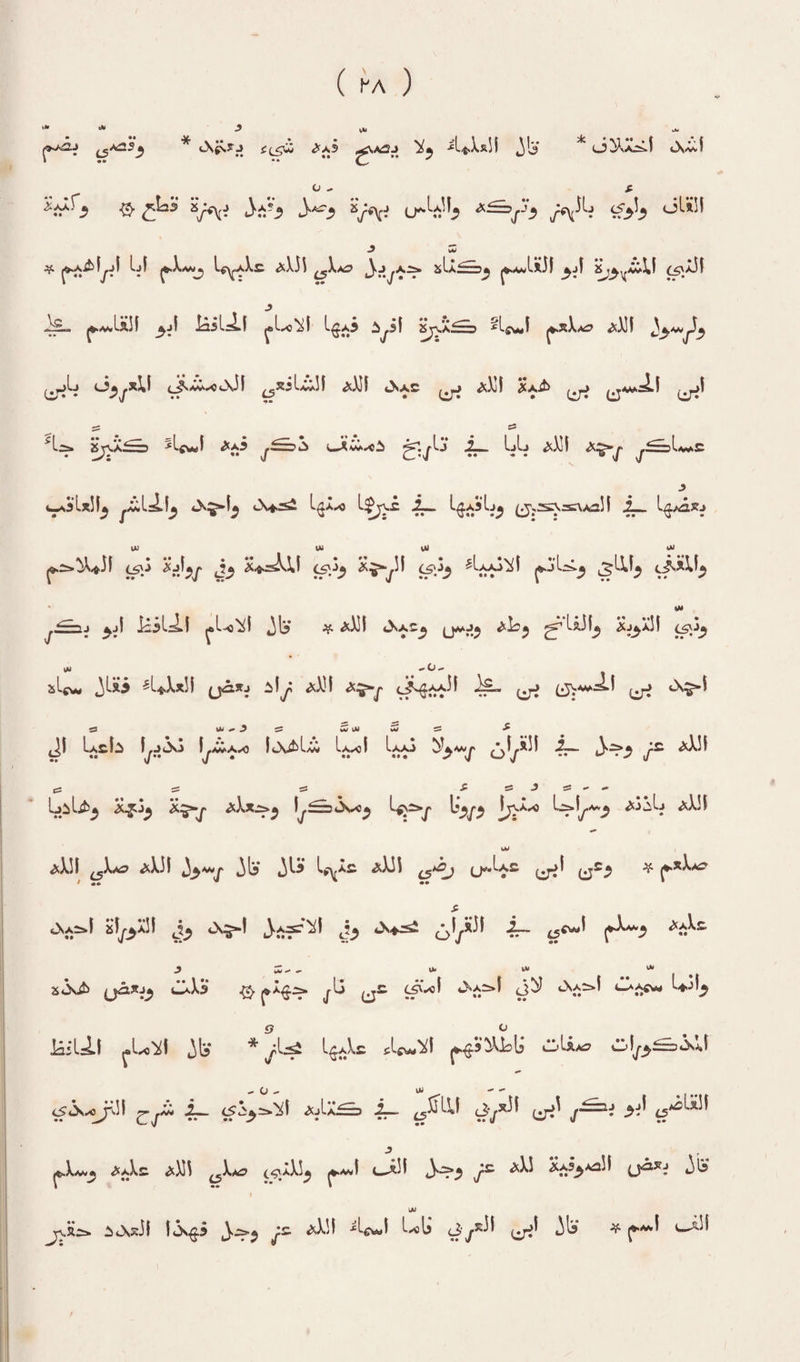 ( ٢٨ )
أشد اختلاف * قال العلماء ولا يصح فيه شيء يعتمد * وقصى بضم
القاف ولؤى بالهمز وتركه والياس بهمزة وصل وقيل بهمزة قطع ۞ وكنية
النبى المشهورة ابو القاسم وكناه جبريل صلى الله عليهما وسلم ابا ابراهيم *
ولرسول الله صلعم اسماء كثيرة أفرد فيها الامام الحافظ ابو القاسم على
ابن الحسن بن هبة الله بن عبد الله الشافعى الدمشقى المعروف بابن
عساكر رحمه الله بابا فى تاريخ دمشق ذكر فيه اسماء كثيرة جاء
بعضها فى الصحيحين وباقيها فى غيرها منها محمد واحمد والحاشر والعاقب
والمقفى والماحى وخاتم الانبياء ونبى الرحمة ونبى الملحمة وفى رواية نبى الملاحم
ونبى التوبة والفاتح وطه ويس وعبد الله * قال الامام الحافظ ابو بكر
احمد بن الحسين بن على البيهقى رحمه الله زاد بعض العلماء فقال سماه
الله عز وجل فى القرآن رسولا نبيا اميا شاهدا مبشرا نذيرا داعيا الى
الله باذنه وسراجا منيرا ورءوفا رحيما ومذكرا وجعله رحمة ونعمة وهاديا
صلعم * وعن ابن عباس رضى الله عنهما قال قال رسول الله صلى الله
عليه وسلم اسمى فى القرآن محمد وفى الانجيل احمد وفى التوراة احيد
وانما سميت احيد لانى احيد امتى عن نار جهنم ۞ قلت وبعض هذه
المذكورات صفات فاطلاقهم الاسماء عليها مجاز * قال الامام الحافظ
القاضى ابو بكر ابن العربى المالكى فى كتابه الاحوذى فى شرح الترمذى
قال بعض الصوفية لله عز وجل الف اسم وللنبى صلى الله عليه وسلم
الف اسم * قال ابن العربى فاما اسماء الله عز وجل فهذا العدد حقير